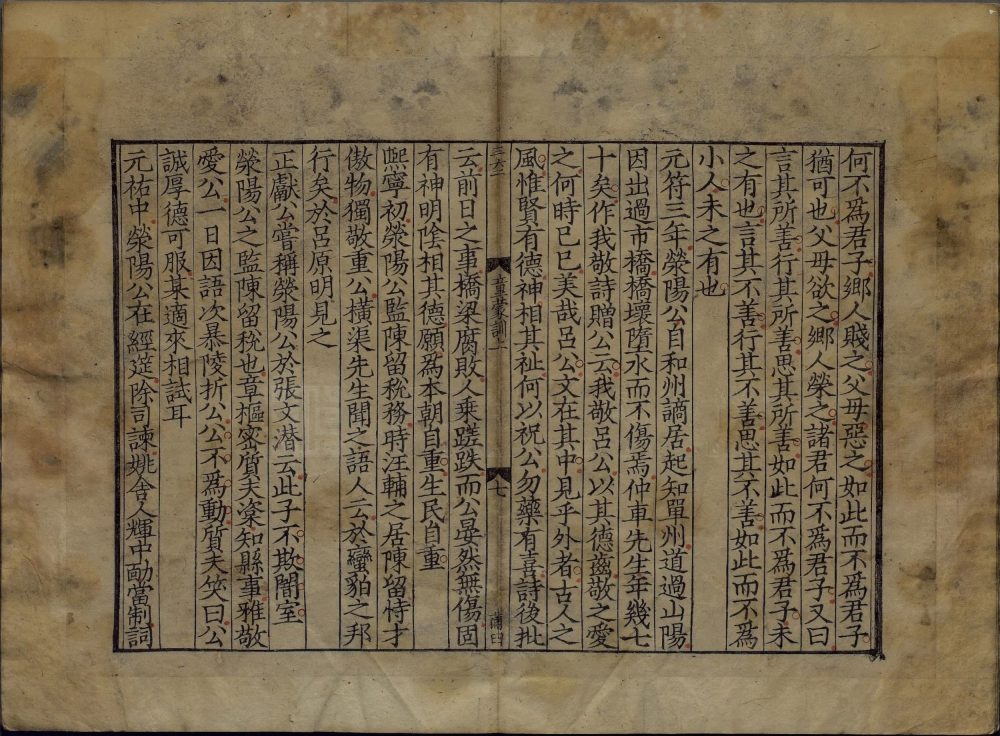 何不爲君子鄉人賤之父母惡之如此而不爲君子
猶可也父母欲之鄉人榮之諸君何不爲君子又曰
言其所善行其所善思其所善如此而不爲君子未
之有也言其不善行其不善思其不善如此而不爲
小人未之有也
元符三年滎陽公自和州謫居起知單州道過山陽
因出過市橋橋壞墮水而不傷焉仲車先生年幾七
十矣作我敬詩贈公云我敬呂公以其德齒敬之愛
之何時已已美哉呂公文在其中見乎外者古人之
風惟賢有德神相其祉何以祝公勿藥有喜詩後批
童蒙訓上
七
云前日之事橋梁腐敗人乘蹉跌而公晏然無傷固
有神明陰相其德願爲本朝自重生民自重
熈寧初滎陽公監陳留稅務時汪輔之居陳留恃才
傲物獨敬重公橫渠先生聞之語人云於蠻貊之邦
行矣於呂原明見之
正獻公嘗稱滎陽公於張文潛云此子不欺闇室
滎陽公之監陳留稅也章樞密質夫楶知縣事雅敬
愛公一日因語次暴陵折公公不爲動質夫笑曰公
誠厚德可服某適來相試耳
元祐中滎陽公在經筵除司諫姚舍人輝中勔當制詞